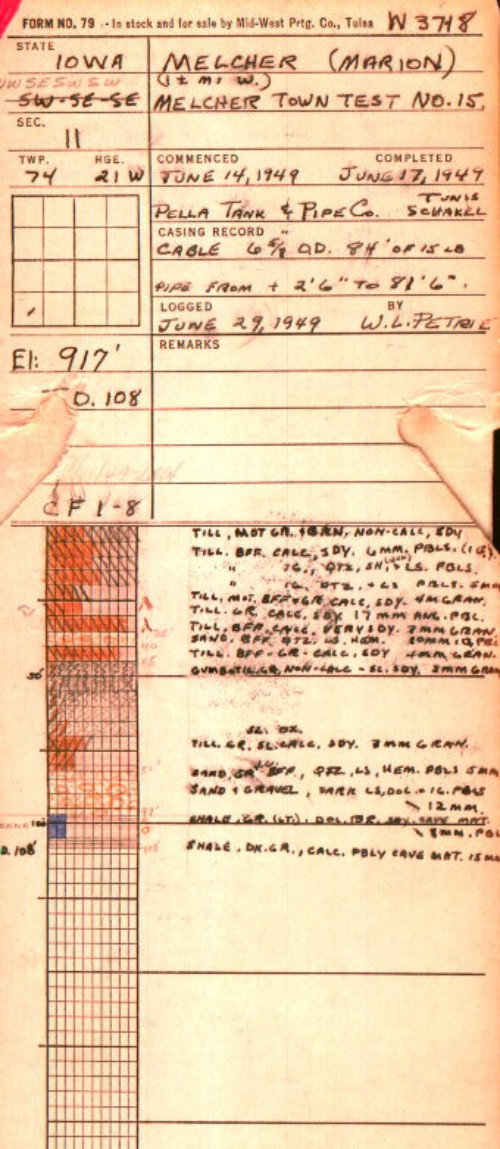 FORM NO. 79 - In stock and for sale by Mid-West Prtg. Co., Tulsa W 3748
STATE
IOWA MELCHER (MARION)
SW SE SW SW (1± mi W.)
SW-SE-SE MELCHER TOWN TEST NO. 15,
SEC.
11
TWP. RGE. COMMENCED COMPLETED
74 21 W JUNE 14, 1949 JUNE 17, 1949
PELLA TANK & PIPE CO. TUNIS SCHAKEL
CASING RECORD
CABLE 6 5/8" O.D. 84' OF 15 LB
PIPE FROM + 2'6" TO 81'6".
LOGGED BY
JUNE 29, 1949 W.L. PETRIE
REMARKS
El: 917'
D. 108
C F 1-8
TILL, MOT GR. & BRN, NON-CALC, SDY
TILL, BFF, CALC, SDY. 6MM. PBLS. (IG)
" IG., QTZ, SH, LS. PBLS.
" IG., QTZ, + LS PBLS. 5MM
TILL, MOT. BFF+GR, CALC, SDY. 4MM GRAN.
TILL, GR, CALC, SDY 17 MM ANG. PBL.
TILL, BFF, CALC, VERY SDY. 3MM GRAN.
SAND, BFF QTZ, LS, HEM. 20MM IG PBL
TILL, BFF-GR-CALC, SDY 4MM GRAN.
50' GUMBOTIL, GR, NON-CALC - SL. SDY. 3MM GRAN
SL. OX.
TILL, GR, SL. CALC, SDY. 3MM GRAN.
SAND, GR BFF, QTZ, LS, HEM. PBLS 5MM
SAND & GRAVEL, DARK LS, DOL. & IG. PBLS
12 MM.
97'
100' SHALE, GR. (LT.), DOL. CAVE MAT.
8MM. PBL
D. 108' SHALE, DK. GR., CALC. PBLY CAVE MAT. 15MM